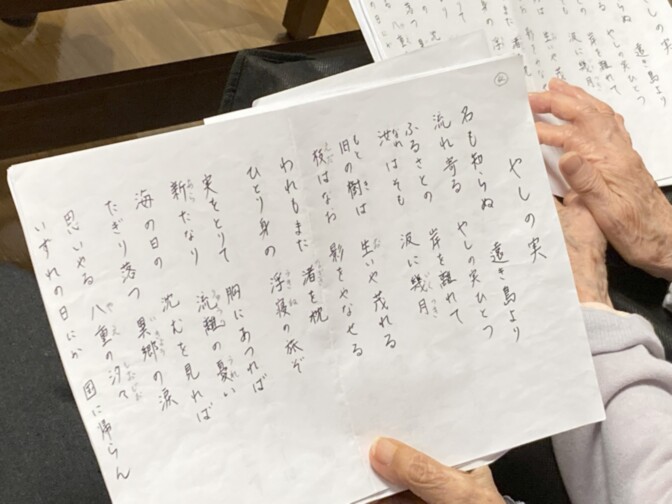 やしの実
名も知らぬ 遠き島より
流れ寄る やしの実ひとつ
ふるさとの 岸を離れて
汝はそも 波に幾月
旧の樹は 生いや茂れる
枝はなお 影をやなせる
われもまた 渚を枕
ひとり身の 浮寝の旅ぞ
実をとりて 胸にあつれば
新たなり 流離の憂い
海の日の 沈むを見れば
たぎり落つ 異郷の涙
思いやる 八重の汐々
いずれの日にか 国に帰らん